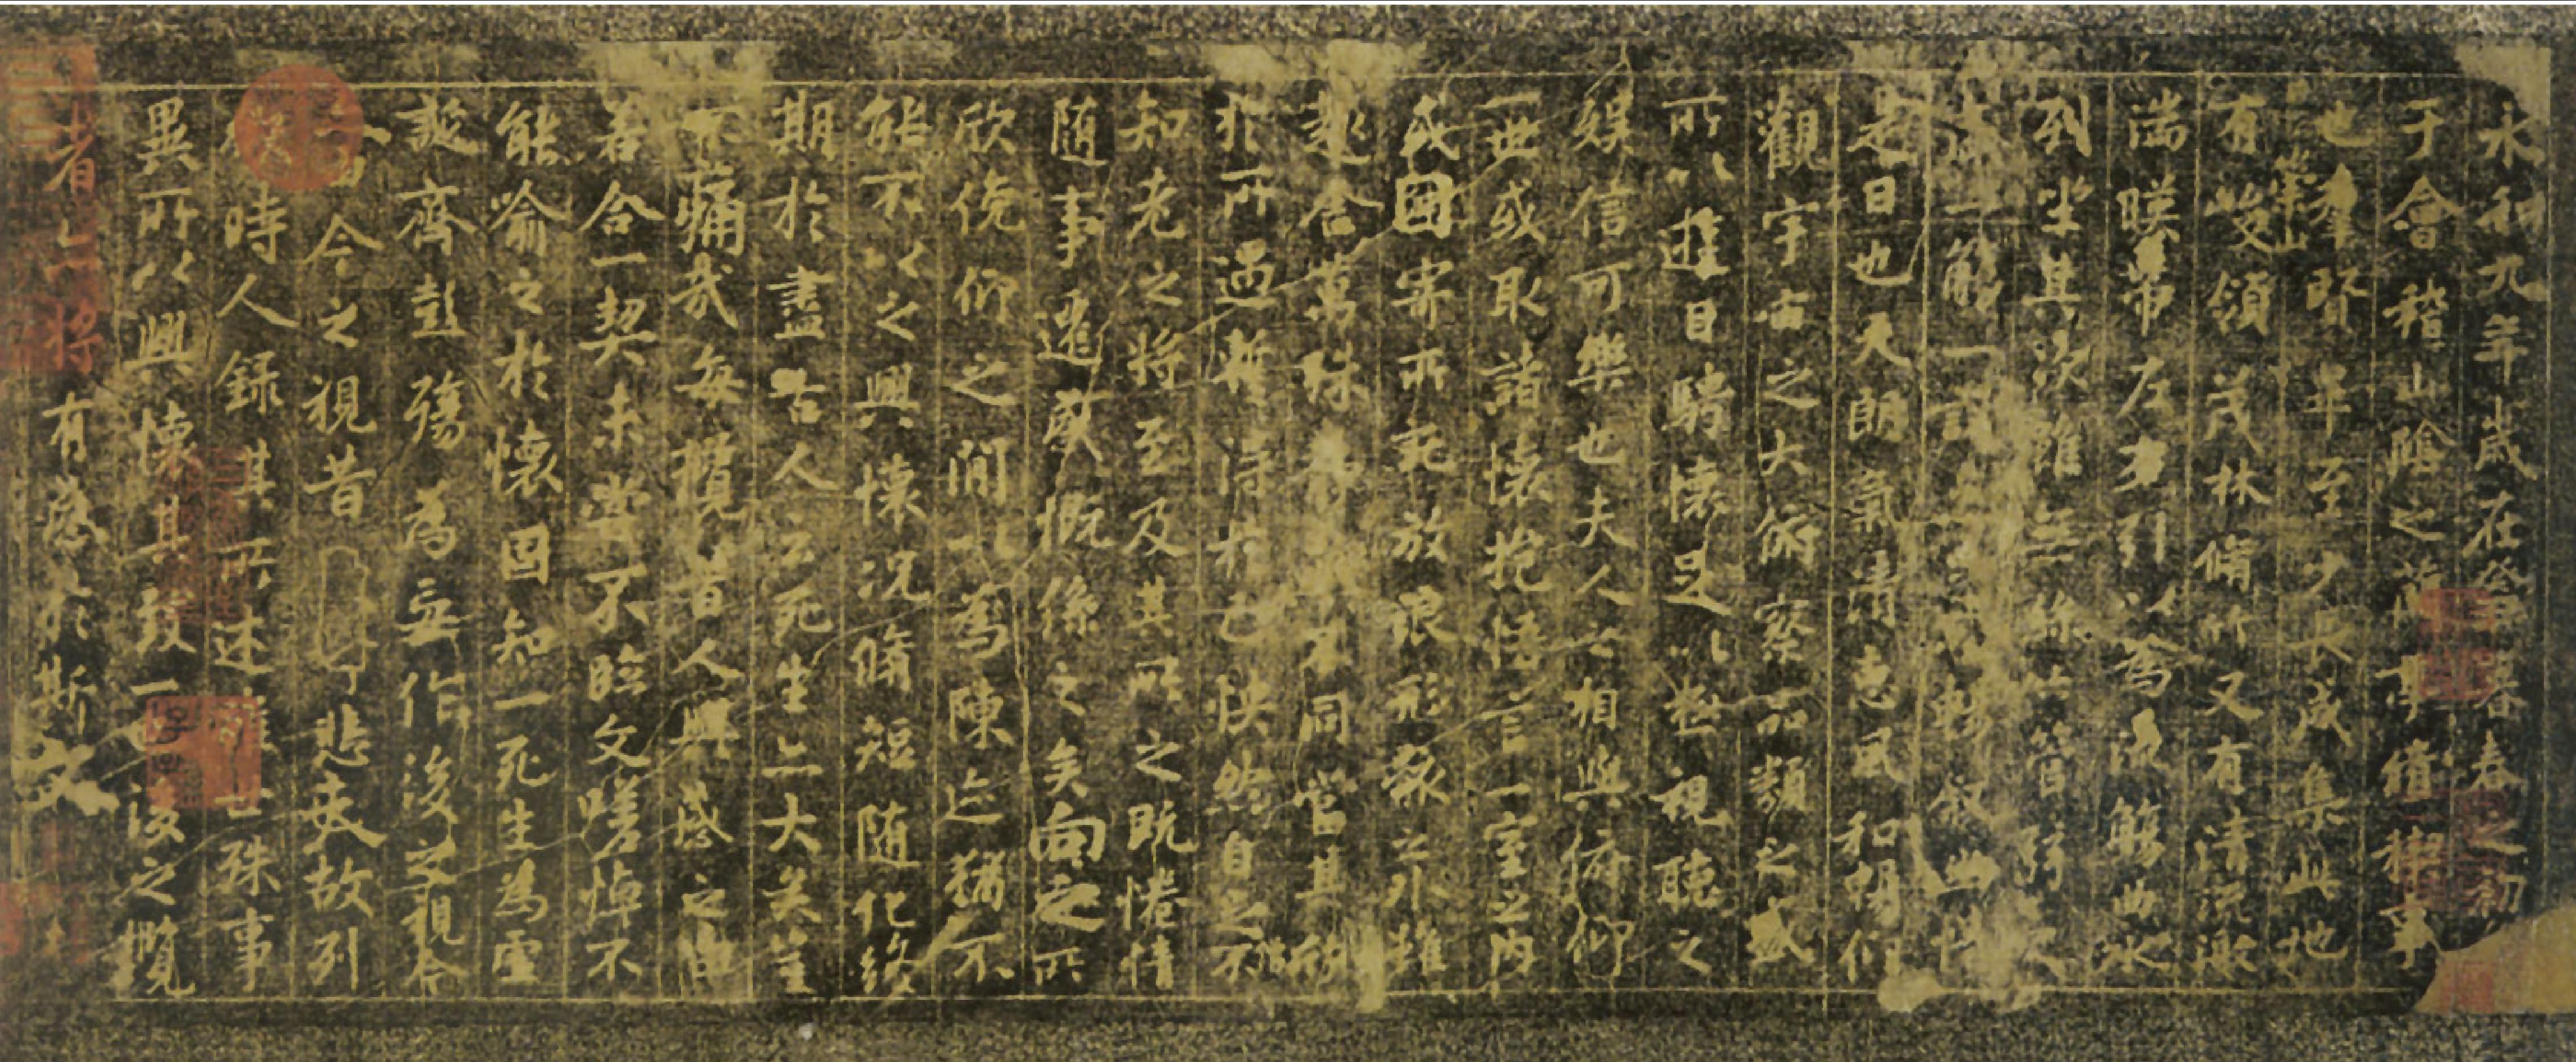 永和九年歲在癸丑暮春之初
于會稽山陰之蘭亭脩禊事
也羣賢畢至少長咸集此地
有崇山峻領茂林脩竹又有清流激
湍暎帶左右引以為流觴曲水
列坐其次雖無絲竹管弦之
盛一觴一詠暢敘幽情
是日也天朗氣清惠風和暢仰
觀宇宙之大俯察品類之盛
所以遊目騁懷足以極視聽之
娛信可樂也夫人之相與俯仰
一世或取諸懷抱悟言一室之內
或因寄所託放浪形骸之外雖
趣舍萬殊靜躁不同當其欣
於所遇蹔得於己快然自足不
知老之將至及其所之既惓情
隨事遷感慨係之矣向之所
欣俛仰之閒以為陳迹猶不
能不以之興懷況脩短隨化終
期於盡古人云死生亦大矣豈
不痛哉每攬昔人興感之由
若合一契未嘗不臨文嗟悼不
能喻之於懷固知一死生為虛
誕齊彭殤為妄作後之視今
亦由今之視昔悲夫故列
敘時人錄其所述雖世殊事
異所以興懷其致一也後之攬
者亦將有感於斯文